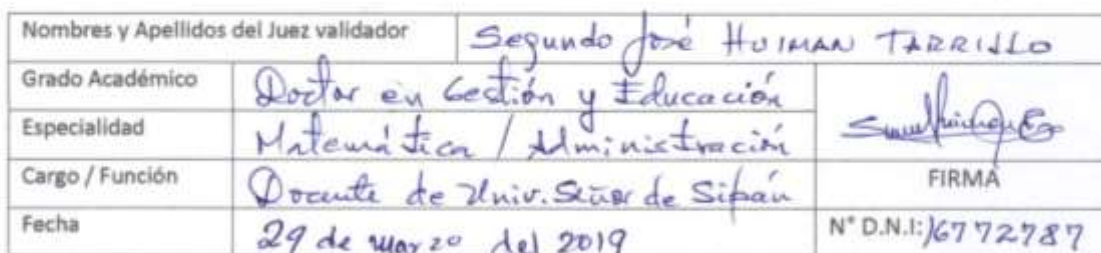 Nombres y Apellidos del Juez validador Segundo José HUIMAN TARRILLO
Grado Académico Doctor en Gestión y Educación
Especialidad Matemática / Administración
Cargo / Función Docente de Univ. Señor de Sipán FIRMA
Fecha 29 de marzo del 2019 N° D.N.I: 16772787